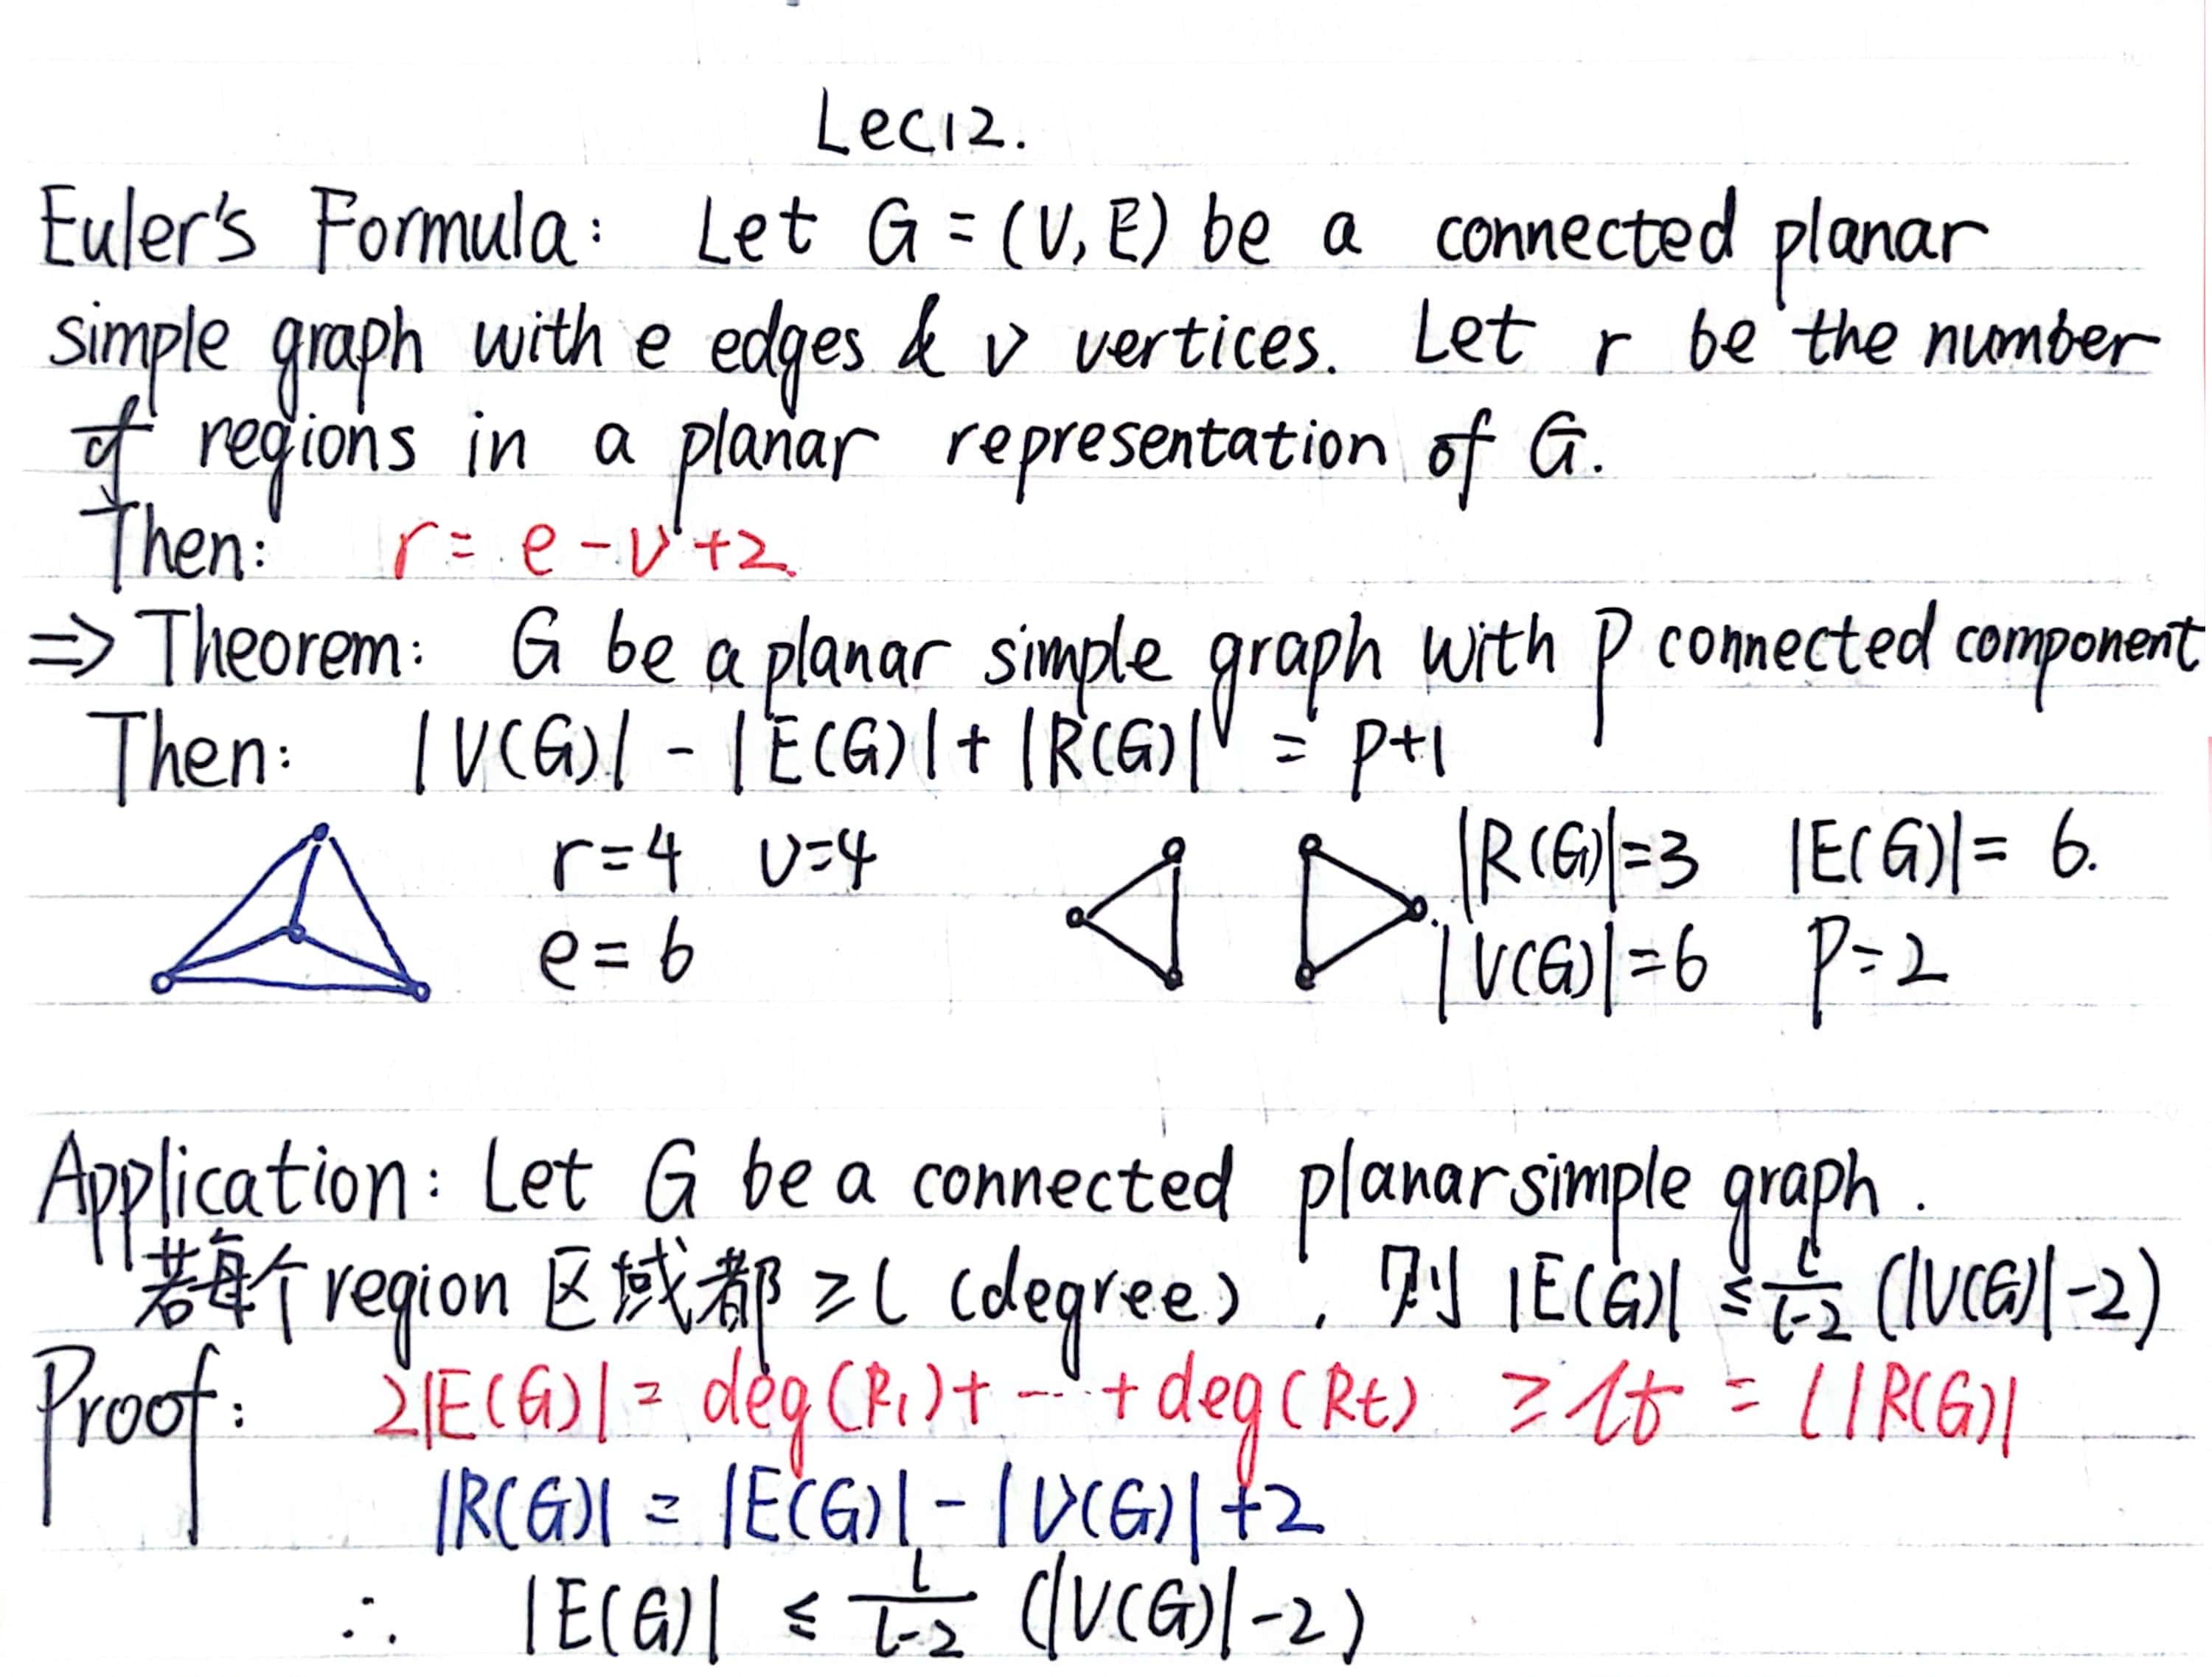 Lec12.
Euler's Formula: Let G = (V, E) be a connected planar
simple graph with e edges & v vertices. Let r be the number
of regions in a planar representation of G.
Then: r = e - v + 2
⇒ Theorem: G be a planar simple graph with p connected component
Then: |V(G)| - |E(G)| + |R(G)| = p+1
r=4 v=4 |R(G)|=3 |E(G)|= 6.
e=6 |V(G)|=6 p=2
Application: Let G be a connected planar simple graph.
若每个region区域都 ≥ l (degree), 则 |E(G)| ≤ l/(l-2) (|V(G)|-2)
Proof: 2|E(G)| = deg(R₁)+ ··· + deg(Rt) ≥ lt = l|R(G)|
|R(G)| = |E(G)| - |V(G)| + 2
∴ |E(G)| ≤ l/(l-2) (|V(G)|-2)